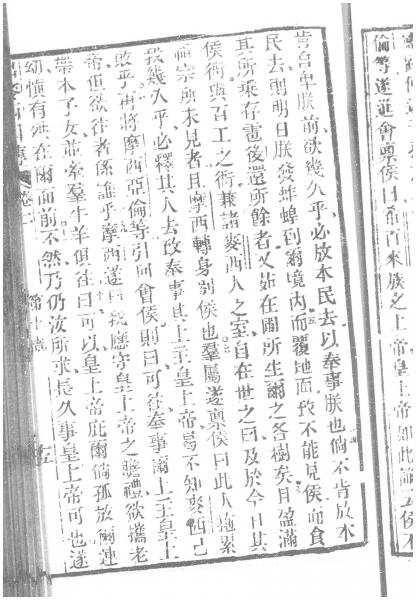 倫等遂進會稟侯曰希百來族之上帝皇上帝
肯自卑朕前欲幾久乎必放本民去以奉事朕也倘不肯放本
民去則明日朕發蚱蜢到爾境內而覆地面致不能見侯而食
其所乘存雹後還所餘者又茹在爾所生爾之各樹矣且盈滿
侯衙與百工之衙兼諸麥西人之室自在世之日及於今日其
祖宗所未見者且摩西轉身別侯也羣屬遂稟侯曰此人拖累
我幾久乎必釋其人去致奉事其上主皇上帝曷不知麥西已
敗乎再將摩西亞倫等引向會侯則曰可往奉事爾上主皇上
帝但欲往者係誰乎摩西遂曰我應守皇上帝之瞻禮欲攜老
帶本子女並家羣牛羊俱往曰可以皇上帝庇爾倘孤放爾連
幼慎有殃在爾面前不然乃仍汝所求長久事皇上帝可也遂
卷 第十章